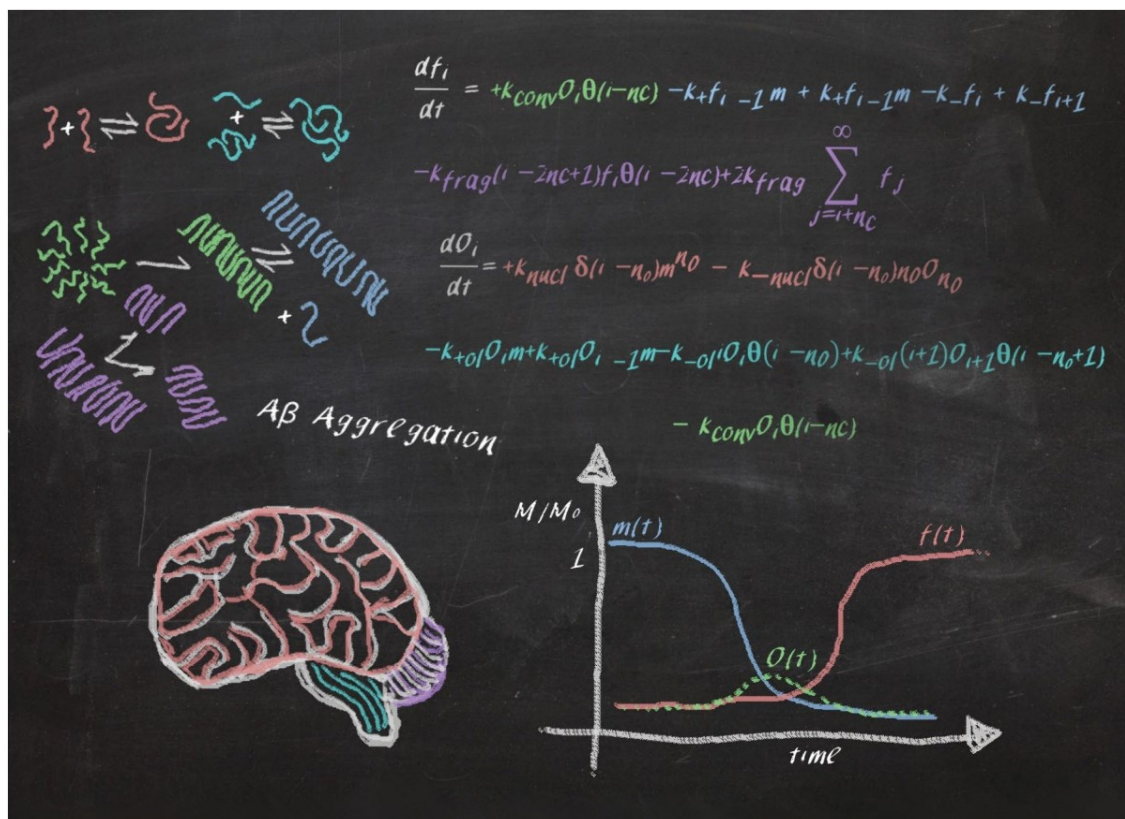 df_i/dt = +k_conv O_i θ(i-nc) -k_+ f_i -1 m + k_+ f_i-1 m -k_- f_i + k_- f_i+1
-k_frag(i -2nc+1)f_i θ(i -2nc)+2k_frag ∑_{j=i+nc}^∞ f_j
dO_i/dt = +k_nucl δ(i -n_o)m^n_o - k_-nucl δ(i -n_o)n_o O_n_o
-k_+ol O_i m+k_+ol O_i -1 m-k_-ol i O_i θ(i -n_o)+k_-ol(i+1)O_i+1 θ(i -n_o+1)
- k_conv O_i θ(i-nc)
+
+
+
Aβ Aggregation
M/M_o
1
m(t)
f(t)
O(t)
time